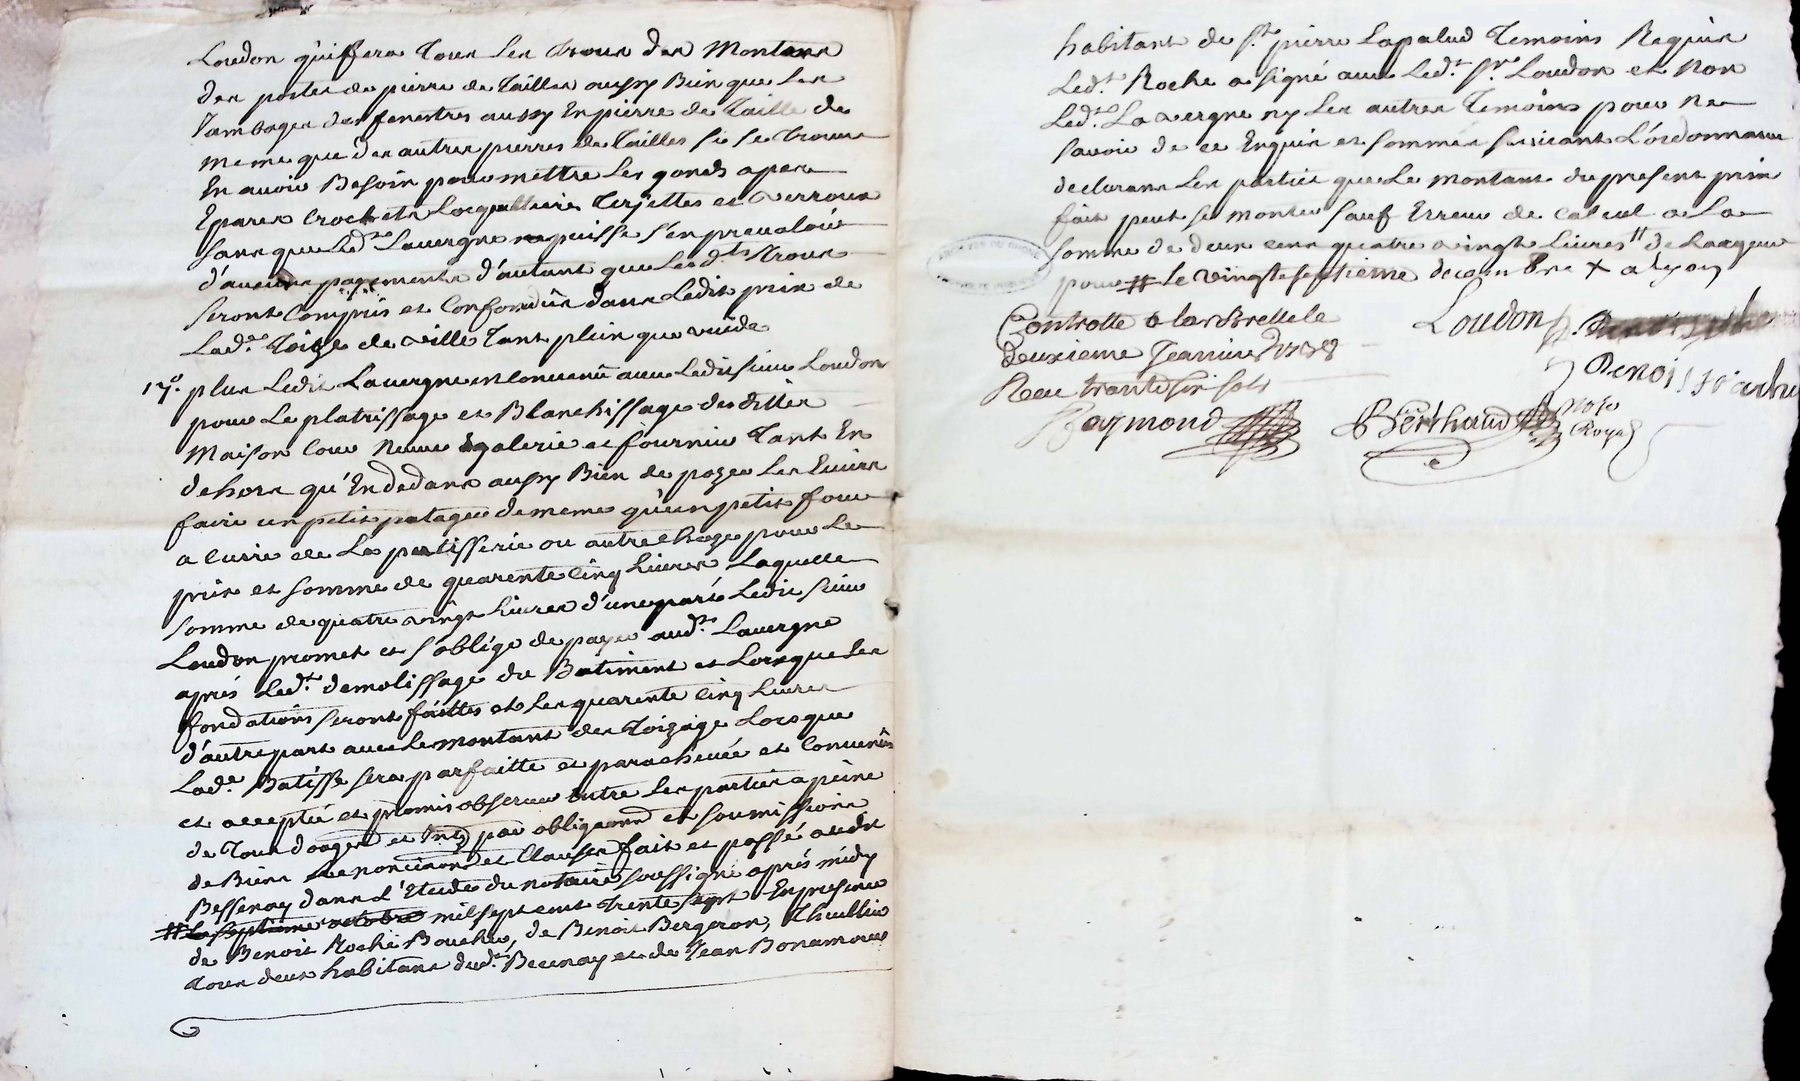 Loudon qu'il fera tous les trous des montans
des portes de pierre de tailles aussy bien que les
jambages des fenestres aussy en pierre de taille de
meme que des autres pierres de tailles si se trouve
en avoir besoin pour mettre les gonds apera
eparas crochets locquettieres terjettes et verroux
sans que ledt Lavergne ne puisse s'en prevaloir
d'aucuns payements d'autant que lesdts trous
seront compris et confondus dans ledit prix de
lade toize de ville tant plein que vuide
17o. plus ledit Lavergne en convenü avec ledit sieur Loudon
pour le platrissage et blanchissage des dittes
maison cour neuve galerie et fournier tant en
dehors qu'en dedans aussy bien de pozer les eviers
faire un petit potager de meme qu'un petit four
a cuire de la patisserie ou autre choze pour le
prix et somme de quarente cinq livres laquelle
somme de quatre vingt livres d'une part ledit sieur
Loudon promet et s'oblige de payer audt Lavergne
aprés ledt demolissage du batiment et lorsque les
fondations seront faittes et les quarente cinq livres
d'autre part avec le montant des toizage lorsque
lade batisse sera parfaitte et parachevée et convenus
et acceptée et promis observer entre les parties a peine
de tous doages et intz par obligaons et soumissions
de biens renonciaons et clauses fait et passé audit
Bessenay dans l'etude du notaire soussigné aprés midy
# le septieme octobre mil sept cent trente sept en presence
de Benoit Roche boucher, de Benoit Bergeron, thuillier
tous deux habitans dudt Becenay et de Jean Bonamour
habitant de st pierre Lapalud temoins requis
ledt Roche a signé avec ledt sr Loudon et non
ledt Lavergne ny les autres temoins pour ne
savoir de ce enquis et sommés suivant l'ordonnance
declarans les parties que le montant du present prix
fait peut se monter sauf erreur de calcul a la
somme de deux cens quatre vingt livres
pour # le vingt septieme decembre
Loudon
Controllé a Larbrelle le
deuxieme Janvier 1738
Benoit Roche
Receu trante six sols
Raymond
Berthaud
Nore
Royal